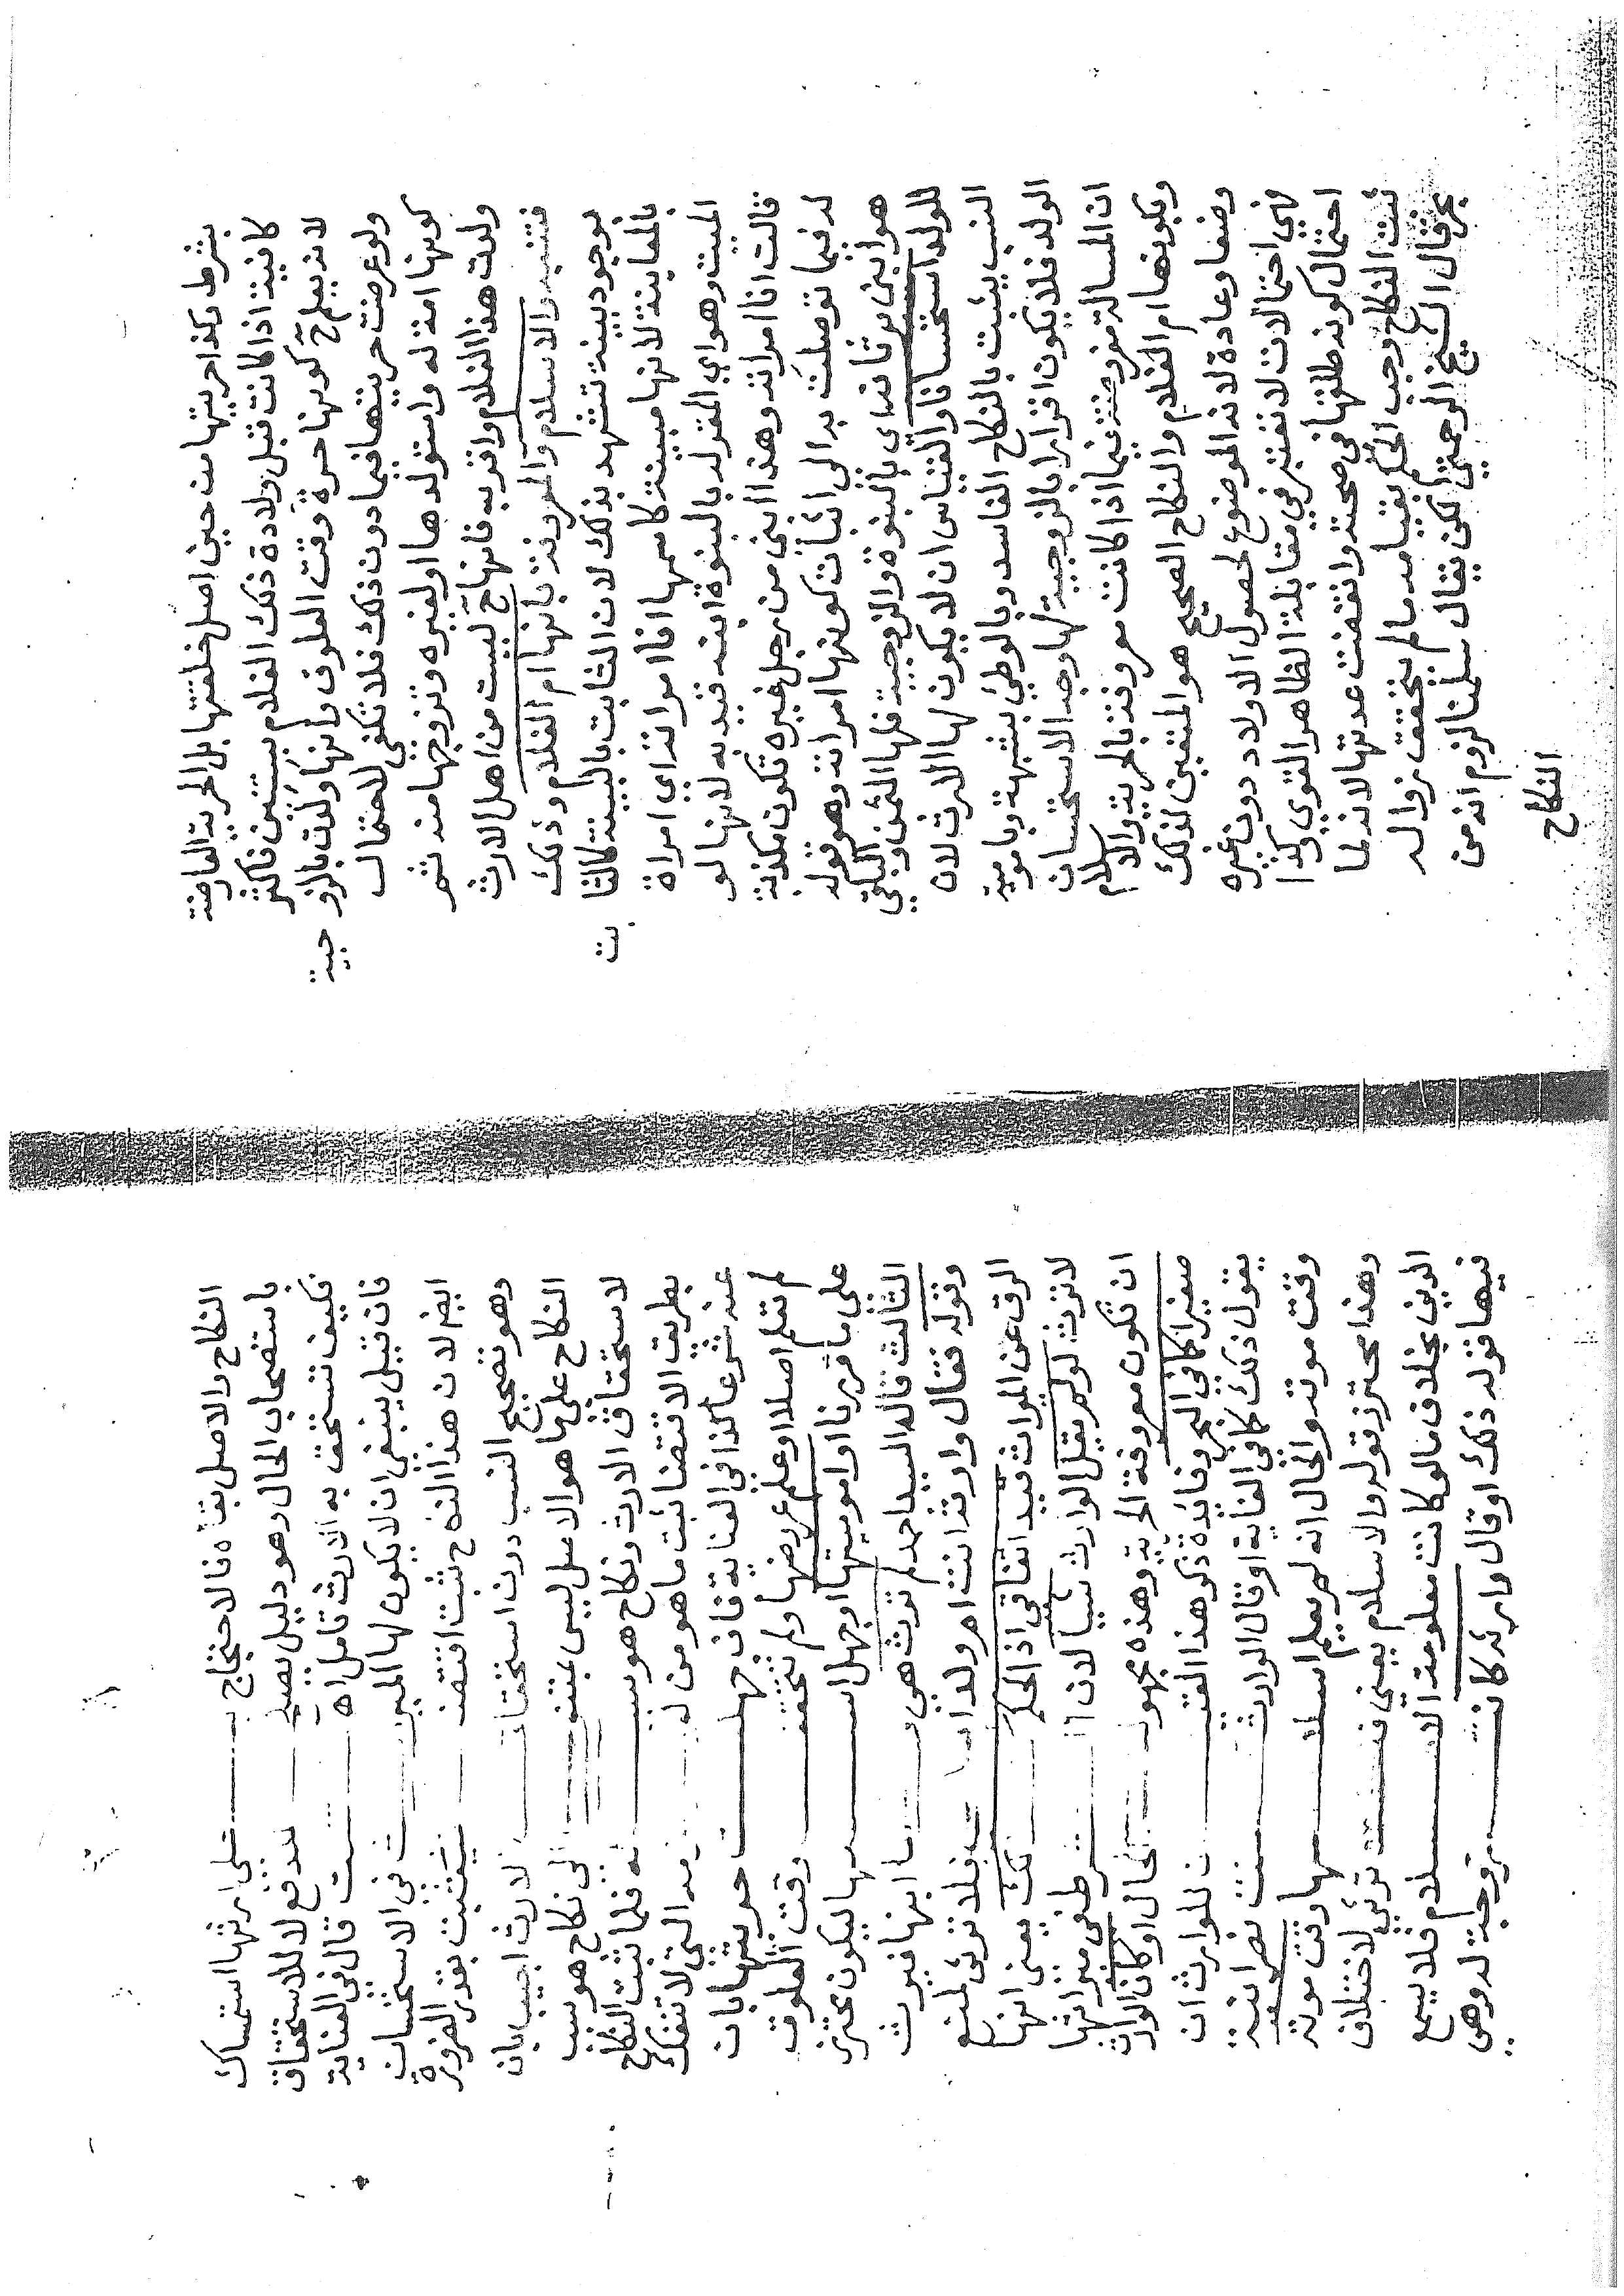 بشرط وكذا حريتها من حين اصل خلقتها بل الحرية العارضة
كافية اذا كانت قبل ولادة ذلك الغلام بسنتين فاكثر
لانه يعلم ح كونها حرة وقت العلوق وانها ولدت بالزوجية
ولو عرضت حريتها فيما دون ذلك فلا تكفي لاحتمال
كونها امة له واستولدها او لغيره وتزوجها منه ثم
ولدت هذا الغلام واقر به فانها ح ليست من اهل الارث
فتنبه والاسلام والمعروفة بانها ام الغلام وذلك
بوجود بينة تشهد بذلك لان الثابت بالبينة كالثابت
بالمعاينة لانها مبينة كاسمها انا امراته اي امراة
الميت وهو اي المقر له بالبنوة ابنه قيد به لانها لو
قالت انا امراته وهذا ابني من رجل غيره تكون مكذبة
له فيما توصلت به الى اثبات كونها امراته وهو قوله
هو ابني يرثانه اي بالبنوة والزوجية فلها الثمن والباقي
للولد استحسانا والقياس ان لا يكون لها الارث لان
النسب يثبت بالنكاح الفاسد وبالوطئ بشبهة وبامومية
الولد فلا يكون اقرارا بالزوجية لها وجه الاستحسان
ان المسالة مفروضة فيما اذا كانت معروفة بالحرية والاسلام
وبكونها ام الغلام والنكاح الصحيح هو المتعين لذلك
وضعا وعادة لانه الموضوع لحصول الاولاد دون غيره
فهي احتمالات لا تعتبر في مقابلة الظاهر القوي وكذا
احتمال كونه طلقها في صحته وانقضت عدتها لانه لما
ثبت النكاح وجب الحكم بقيامه ما لم يتحقق زواله
بحر قال الشيخ الرحمتي لكن يقال سلمنا لزوم انه من
النكاح
النكاح والاصل بقاؤه فالاحتجاج على ارثها استمساك
باستصحاب الحال وهو دليل يصلح للدفع لا للاستحقاق
فكيف تستحق به الارث تامل اه قال في العناية
فان قيل ينبغي ان لا يكون لها الميراث في الاستحسان
ايضا لان هذا النكاح ثبت اقتضاء فيثبت بقدر الضرورة
وهو تصحيح النسب دون استحقاق الارث اجيب بان
النكاح على ما هو الاصل ليس بمتنوع الى نكاح هو سبب
لاستحقاق الارث ونكاح هو ليس بسبب له فلما ثبت النكاح
بطريق الاقتضا ثبت ما هو من لوازمه التي لا تنفك
عنه شرعا كذا في العناية فان جهلت حريتها بان
لم تعلم اصلا او علم عروضها ولم تتحقق وقت العلوق
على ما قررنا او اموميتها او جهل اسلامها ليكون محترز
الثالث قاله السيد احمد لم ترث هي واما ابنها فيرث
وقوله فقال وارثه انت ام ولد ابي فلا ترث لمنع
الرق عن الميراث قيد اتفاقي اذ الحكم كذلك يعني انها
لا ترث لو لم يقل الوارث شيا لان الشرط في ميراثها
ان تكون معروفة الحرية وهذه مجهولة الحال او كان الوارث
صغيرا كما في البحر وفائدة ذكر هذا القيد ان للوارث ان
يقول ذلك كما في الغاية او قال الوارث كانت نصرانية
وقت موته والحال انه لم يعلم اسلامها وقت موته
وهذا محترز قوله والاسلام يعني فليست ترث لاختلاف
الدين بخلاف ما لو كانت معلومة الاسلام فلا يسمع
فيها قوله ذلك او قال وارثه كانت زوجة له وهي